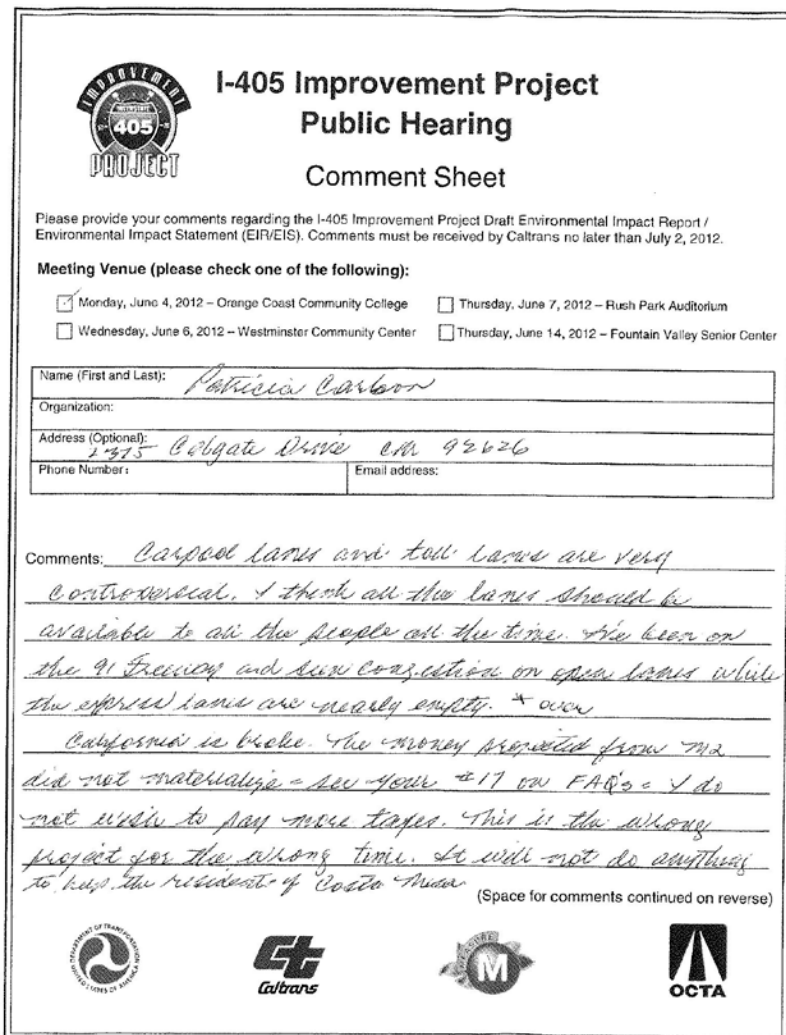 IMPROVEMENT
INTERSTATE
405
PROJECT
I-405 Improvement Project
Public Hearing
Comment Sheet
Please provide your comments regarding the I-405 Improvement Project Draft Environmental Impact Report /
Environmental Impact Statement (EIR/EIS). Comments must be received by Caltrans no later than July 2, 2012.
Meeting Venue (please check one of the following):
Monday, June 4, 2012 – Orange Coast Community College
Thursday, June 7, 2012 – Rush Park Auditorium
Wednesday, June 6, 2012 – Westminster Community Center
Thursday, June 14, 2012 – Fountain Valley Senior Center
Name (First and Last): Patricia
Organization:
Address (Optional): Colgate Drive CM 92626
Phone Number:
Email address:
Comments: Carpool lanes and toll lanes are very
controversial. I think all the lanes should be
available to all the people all the time. I've been on
the 91 Freeway and seen congestion on open lanes while
the express lanes are nearly empty. * over
California is broke. The money projected from M2
did not materialize = see your #17 on FAQ's = I do
not wish to pay more taxes. This is the wrong
project for the wrong time. It will not do anything
to help the residents of Costa Mesa
(Space for comments continued on reverse)
DEPARTMENT OF TRANSPORTATION
UNITED STATES OF AMERICA
Caltrans
MEASURE
M
OCTA